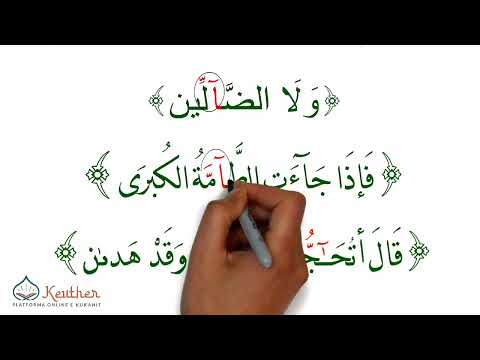 ﴿وَلَا الضَّآلِّين﴾
﴿فَإِذَا جَآءَتِ الطَّآمَّةُ الكُبرَى﴾
﴿قَالَ أَتُحَـٰٓجُّ وَقَدْ هَدىٰن﴾
Keuther
PLATFORMA ONLINE E KURANIT